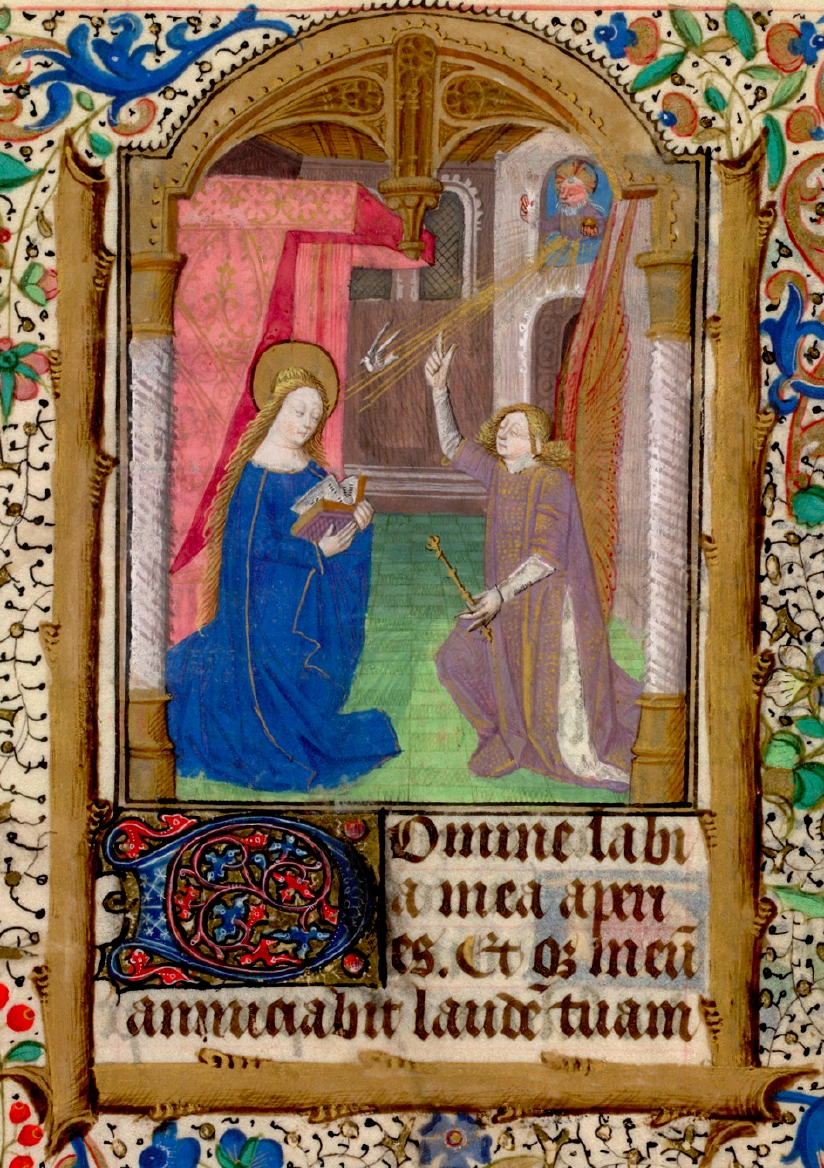 Domine labi
a mea aperi
es. Et os meū
annunciabit laudē tuam